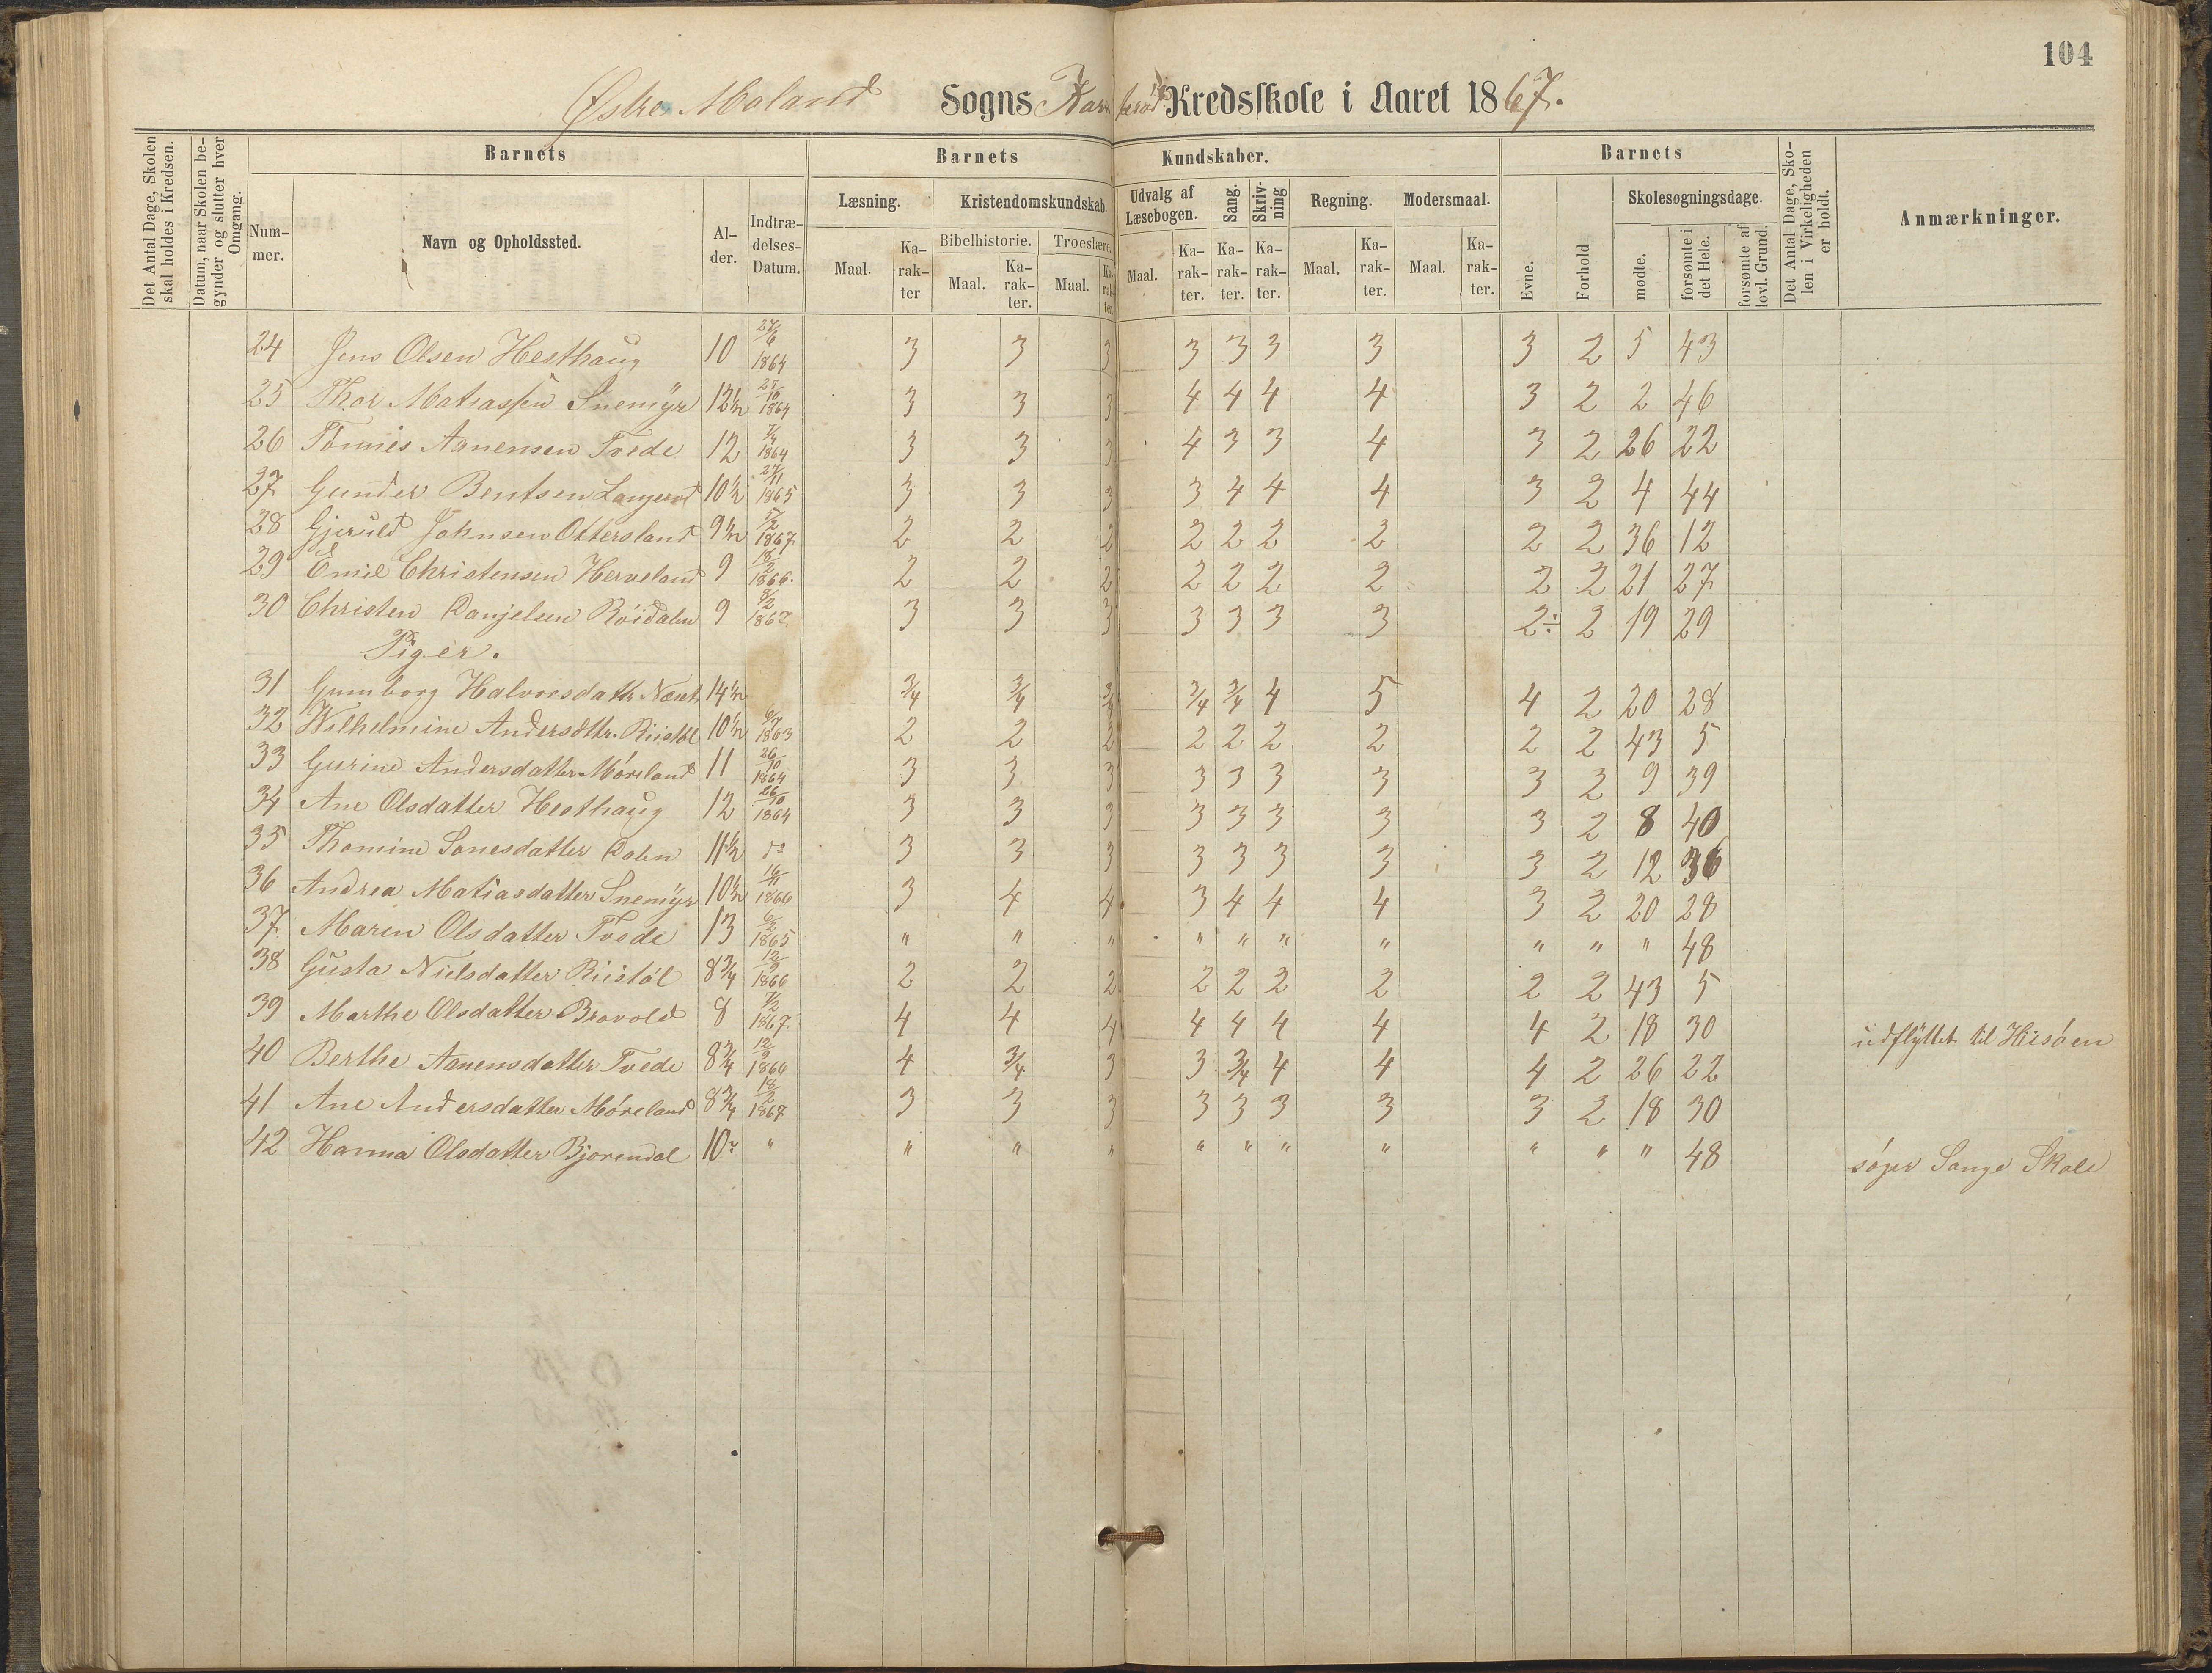 104
Østre Moland Sogns Kredsskole i Aaret 1867.
Det Antal Dage, Skolen skal holdes i Kredsen.
Datum, naar Skolen begynder og slutter hver Omgang.
Barnets
Barnets Kundskaber.
Barnets
Det Antal Dage, Skolen i Virkeligheden er holdt.
Anmærkninger.
Nummer.
Navn og Opholdssted.
Alder.
Indtrædelses-Datum.
Læsning.
Kristendomskundskab.
Udvalg af Læsebogen.
Sang.
Skrivning
Regning.
Modersmaal.
Evne.
Forhold
Skolesøgningsdage.
Bibelhistorie.
Troeslære.
Maal. Karakter Maal. Karakter. Maal. Karakter. Maal. Karakter. Karakter. Karakter. Maal. Karakter. Maal. Karakter.
mødte.
forsømte i det Hele.
forsømte af lovl. Grund.
24 Jens Olsen Hesthaug 10 27/6 1864 3 3 3 3 3 3 3 3 2 5 43
25 Thor Matiassen Snemyr 12½ 27/10 1864 3 3 3 4 4 4 4 3 2 2 46
26 Tønnes Aanensen Tvede 12 1864 3 3 3 4 3 3 4 3 2 26 22
27 Gunder Bentsen Langerød 10½ 27/11 1865 3 3 3 3 4 4 4 3 2 4 44
28 Gjeruld Johnsen Ottersland 9½ 5/2 1867 2 2 2 2 2 2 2 2 2 36 12
29 Emil Christensen Herveland 9 18/2 1866. 2 2 2 2 2 2 2 2 2 21 27
30 Christen Danjelsen Röidalen 9 8/2 1867 3 3 3 3 3 3 3 2÷ 2 19 29
Piger.
31 Gunnborg Halvorsdattr 14½ 3/4 3/4 3/4 3/4 3/4 4 5 4 2 20 28
32 Wilhelmine Andersdttr. Riistöl 10½ 6/7 1863 2 2 2 2 2 2 2 2 2 43 5
33 Gurine Andersdatter Móreland 11 26/10 1864 3 3 3 3 3 3 3 3 2 9 39
34 Ane Olsdatter Hesthaug 12 26/10 1864 3 3 3 3 3 3 3 3 2 8 40
35 Thomine Sonesdatter Dalen 11½ do 3 3 3 3 3 3 3 3 2 12 36
36 Andrea Matiasdatter Snemyr 10½ 1866 3 4 4 3 4 4 4 3 2 20 28
37 Maren Olsdatter Tvede 13 6/2 1865 " " " " " " " " " " 48
38 Gusta Nielsdatter Riistól 8¾ 12/9 1866 2 2 2 2 2 2 2 2 2 43 5
39 Marthe Olsdatter Brovold 8 7/2 1867 4 4 4 4 4 4 4 4 2 18 30 udflyttet til Hisóen
40 Berthe Aanensdatter Tvede 8¾ 12/9 1866 4 3/4 3 3 3/4 4 4 4 2 26 22
41 Ane Andersdatter Móreland 8¾ 18/2 1867 3 3 3 3 3 3 3 3 2 18 30
42 Hanna Olsdatter Bjorendal 10 " " " " " " " " " " " 48 söger Songe Skole